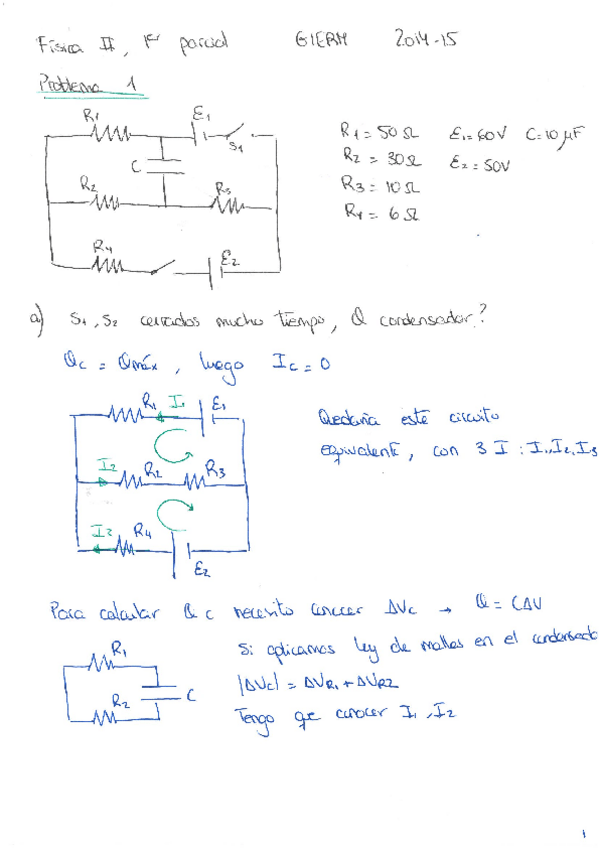 Física II, 1er parcial GIERM 2014-15
Problema 1
R1 E1 S1
C
R2 R3
R4 E2
R1 = 50 Ω E1 = 60V C = 10 μF
R2 = 30 Ω E2 = 50V
R3 = 10 Ω
R4 = 6 Ω
a) S1, S2 cerrados mucho tiempo, Q condensador?
Qc = Qmáx, luego Ic = 0
R1 I1 E1
I2 R2 R3
I3 R4
E2
Quedaría este circuito
equivalente, con 3 I: I1, I2, I3
Para calcular Qc necesito conocer ΔVc → Q = CΔV
R1
R2 C
Si aplicamos ley de mallas en el condensado
|ΔVc| = ΔVR1 + ΔVR2
Tengo que conocer I1, I2
1